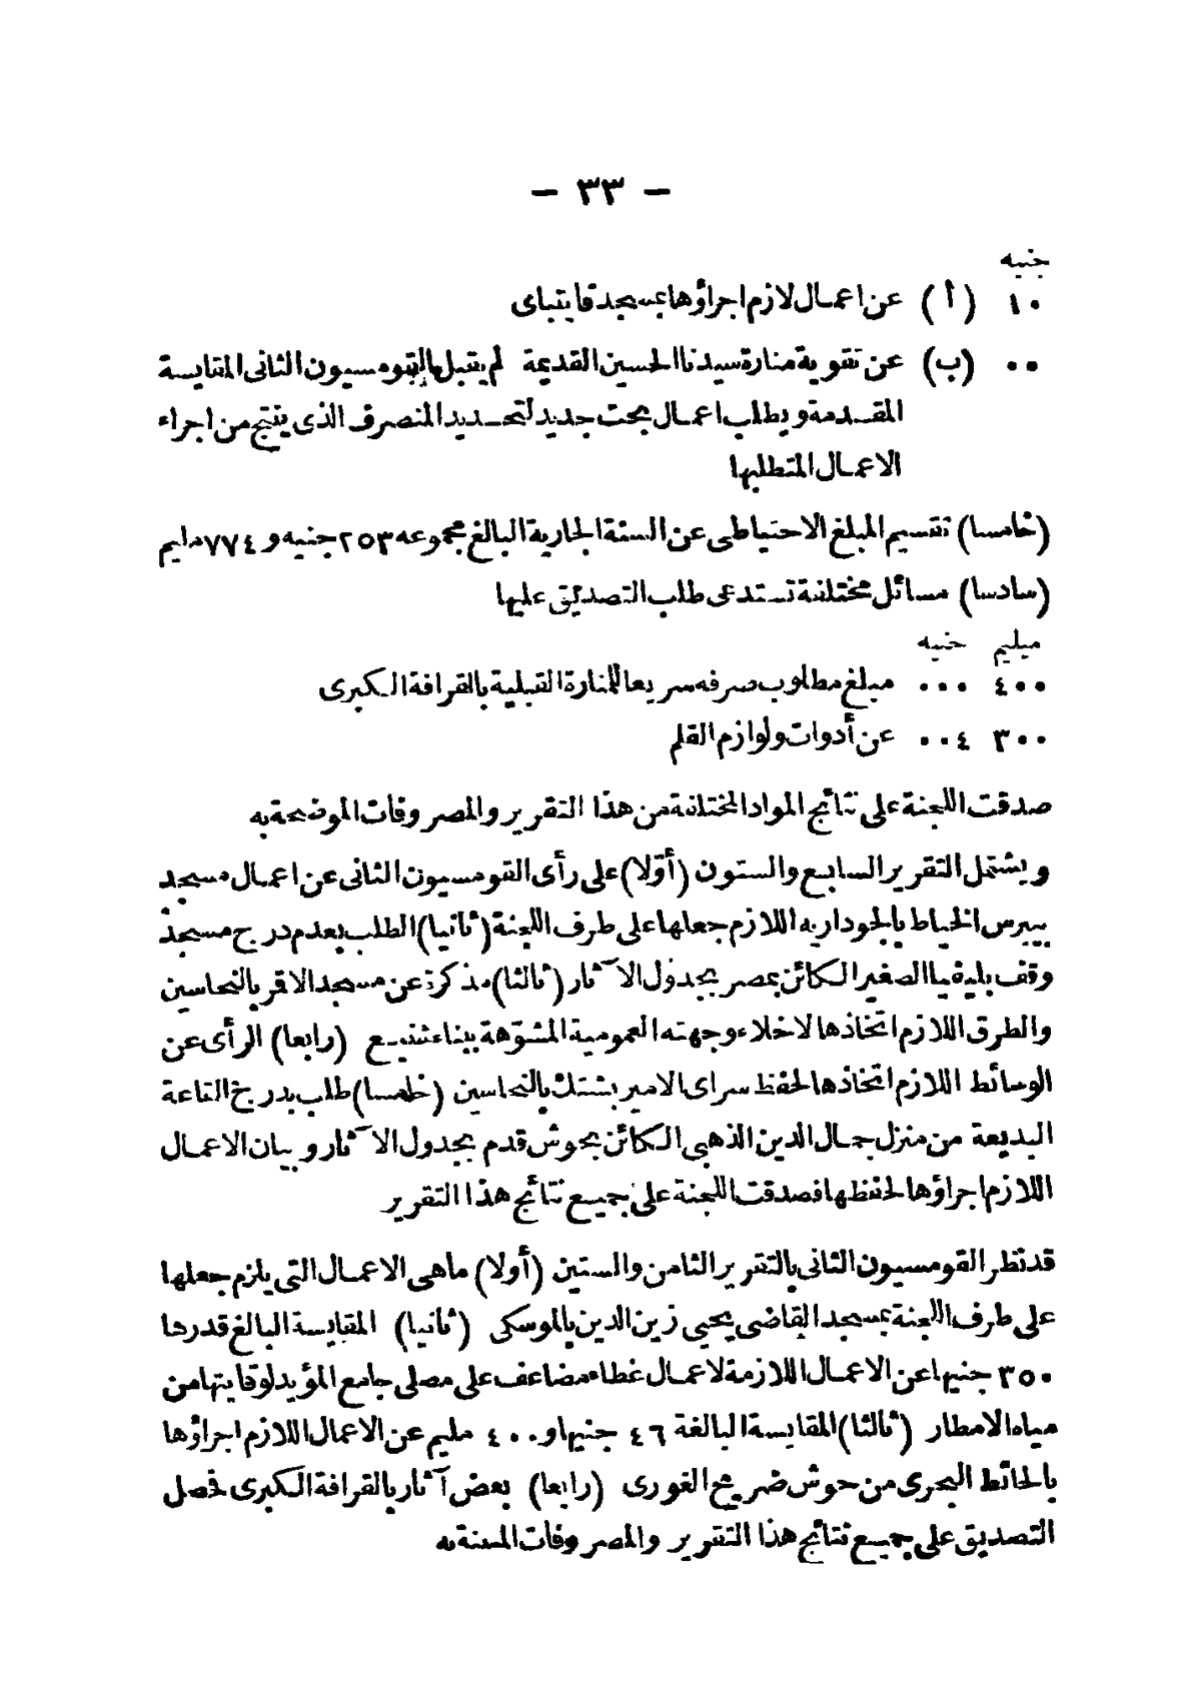 — ٣٣ —
جنيه
١٠ (أ) عن اعمال لازم اجراؤها بمسجد قايتباى
٠٠ (ب) عن تقوية منارة سيدنا الحسين القديمة لم يقبل القومسيون الثانى المقايسة
المقدمة ويطلب اعمال بحث جديد لتحديد المنصرف الذى ينتج من اجراء
الاعمال المتطلبها
(خامسا) تقسيم المبلغ الاحتياطى عن السنة الجارية البالغ مجموعه ٢٥٣ جنيه و ٧٧٤ مليم
(سادسا) مسائل مختلفة تستدعى طلب التصديق عليها
مليم جنيه
٤٠٠ ٠٠٠ مبلغ مطلوب صرفه سريعا للمنارة القبلية بالقرافة الكبرى
٣٠٠ ٠٠٤ عن أدوات ولوازم القلم
صدقت اللجنة على نتائج المواد المختلفة من هذا التقرير والمصروفات الموضحة به
ويشتمل التقرير السابع والستون (أوّلا) على رأى القومسيون الثانى عن اعمال مسجد
بيبرس الخياط بالجوداريه اللازم جعلها على طرف اللجنة (ثانيا) الطلب بعدم درج مسجد
وقف بليفيا الصغير الكائن بمصر بجدول الآثار (ثالثا) مذكرة عن مسجد الاقر بالنحاسين
والطرق اللازم اتخاذها لاخلاء وجهته العمومية المشوّهة ببناء شنيع (رابعا) الرأى عن
الوسائط اللازم اتخاذها لحفظ سراى الامير بشتك بالنحاسين (خامسا) طلب بدرج القاعة
البديعة من منزل جمال الدين الذهبى الكائن بحوش قدم بجدول الآثار وبيان الاعمال
اللازم اجراؤها لحفظها فصدقت اللجنة على جميع نتائج هذا التقرير
قد نظر القومسيون الثانى بالتقرير الثامن والستين (أولا) ماهى الاعمال التى يلزم جعلها
على طرف اللجنة بمسجد القاضى يحيى زين الدين بالموسكى (ثانيا) المقايسة البالغ قدرها
٣٥٠ جنيها عن الاعمال اللازمة لاعمال غطاء مضاعف على مصلى جامع المؤيد لوقايتها من
مياه الامطار (ثالثا) المقايسة البالغة ٤٦ جنيها و ٤٠٠ مليم عن الاعمال اللازم اجراؤها
بالحائط البحرى من حوش ضريح الغورى (رابعا) بعض آثار بالقرافة الكبرى فحصل
التصديق على جميع نتائج هذا التقرير والمصروفات المبينة به